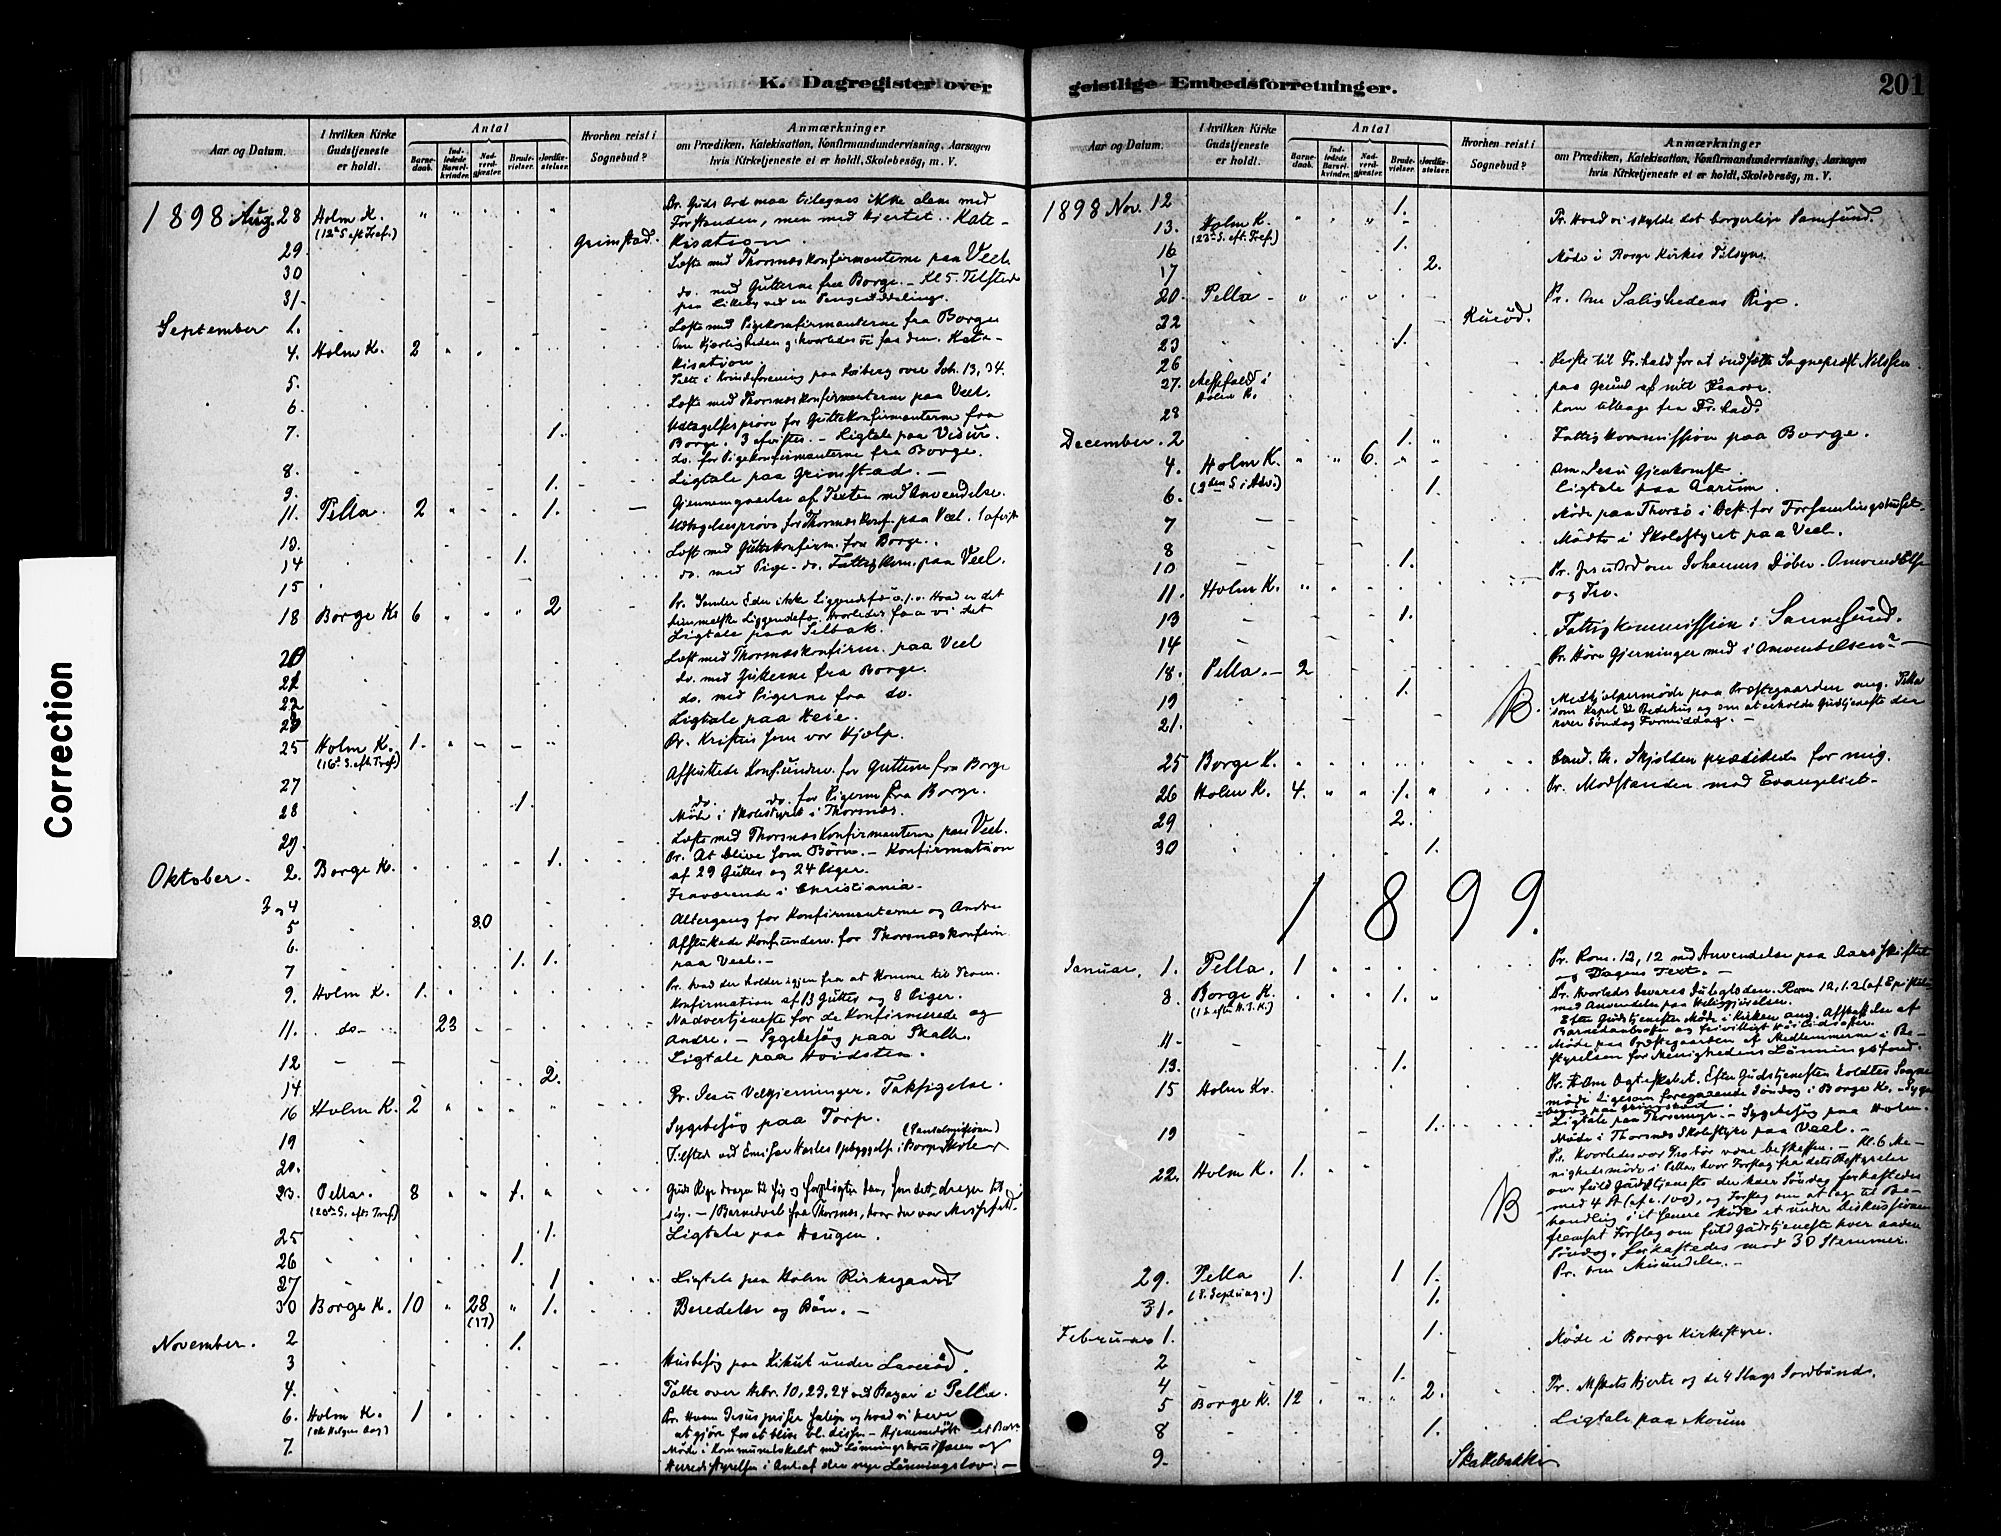 Correction
K. Dagregister over
Aar og Datum.
I hvilken Kirke Gudstjeneste er holdt.
Antal
Barnedaab.
Indledede Barselkvinder.
Nadverdgjæster.
Brudevielser.
Jordfæstelser.
Hvorhen reist i Sognebud?
Anmærkninger
om Prædiken, Katekisation, Konfirmandundervisning, Aarsagen
hvis Kirketjeneste ei er holdt, Skolebesøg, m. V.
1898 Aug. 28 Holm K. Pr. Guds Ord maa tilegnes ikke alene med
(12te S. eft. Tref.) Forstanden, men med Hjertet. Kate-
29 Grimstad. kisation.
30 Læste med Thorsnæskonfirmanterne paa Veel.
31 do. med Gutterne fra Borge. – Kl 5 Tilsted
September 1. Læste med Pigekonfirmanterne fra Borge
4. Holm K. 2 Om Kjærligheden og hvorledes vi faa den. Kate-
kisation.
5. Talte i Kvindeforening paa over Joh. 13, 34.
6. Læste med Thorsnæskonfirmanterne paa Veel.
7. 1. Udtagelsesprøve for Guttekonfirmanterne fra
Borge. 3 afvistes. – Ligtale paa
8. do. for Pigekonfirmanterne fra Borge.
9. 1. Ligtale paa Grimstad. –
11. Pella. 2 1. Gjennemgaaelse af Texten med Anvendelse.
13. Udtagelsesprøve for Thorsnæskonf. paa Veel. 1 afvist
14 1. Læst med Guttekonfirm. fra Borge.
15 do. med Pige- do. Fattigkom. paa Veel.
18 Borge K. 6 2 Pr. Samler Eder ikke Liggendefæ o.l. – Hvad er det
himmelske Liggendefæ. Hvorledes faa vi det
Ligtale paa Selbak.
20 Læst med Thorsnæskonfirm. paa Veel
21 do. med Gutterne fra Borge.
22 do. med Pigerne fra do.
23 Ligtale paa Heie.
25 Holm K. 1. Pr. Kristus som vor Hjælp.
(16de S. eft. Tref.)
27 Afsluttede Konf.underv. for Gutterne fra Borge
28 1. do. do. for Pigerne fra Borge.
Møde i Skolestyret i Thorsnæs.
29. Læste med Thorsnæskonfirmanterne paa Veel.
Oktober. 2. Borge K. 1. Pr. At blive som Børn. – Konfirmation
af 29 Gutter og 24 Piger.
3 og 4 Fraværende i Christiania.
5 80 Altergang for Konfirmanterne og Andre
6. Afsluttede Konf.underv. for Thorsnæskonfirm
7 1. 1. paa Veel. –
9. Holm K. 1. Pr. Hvad der holder igjen fra at komme til Troen.
Konfirmation af 13 Gutter og 8 Piger.
11. do 23 Nadvertjeneste for de Konfirmerede og
Andre. – Sygebesøg paa
12 Ligtale paa Hvidsten.
14 2.
16 Holm K. 2 Pr. Jesu Velgjerninger. Taksigelse.
19 Sygebesøg paa Torp.
20. Tilsted ved Emissær Opbyggelse i Borge Skole (Santalmissionen)
23. Pella. 8 1. Guds Rige drager til sig og forpligter dem, som det drager til
(20de S. efter Tref.) sig. – 1 Barnedaab fra Thorsnæs, hvor der var Messefald.
25 1. Ligtale paa Haugen.
26 1.
27 1 Ligtale paa Holm Kirkegaard
30 Borge K. 10 28 1. Beredelse og Bøn. –
(17)
November. 2 1.
3 Husbesøg paa Kikut under
4. Talte over Hebr. 10, 23, 24 ved Bazar i Pella.
6. Holm K. 1 Pr. Hvem Jesus priser salige og hvad vi have
(Alle Helgens Dag) at gjøre for at blive bl. disse.
7. Møde i Kommunelokalet med Lønningskommissionen og
Herredsstyrelsen i Anl. af den nye Lønningslov. –
geistlige Embedsforretninger.
201
Aar og Datum.
I hvilken Kirke Gudstjeneste er holdt.
Antal
Barnedaab.
Indledede Barselkvinder.
Nadverdgjæster.
Brudevielser.
Jordfæstelser.
Hvorhen reist i Sognebud?
Anmærkninger
om Prædiken, Katekisation, Konfirmandundervisning, Aarsagen
hvis Kirketjeneste ei er holdt, Skolebesøg, m. V.
1898 Nov. 12 1.
13. Holm K. Pr. Hvad vi skylde det borgerlige Samfund.
(23de S. eft. Tref.)
16 1. Møde i Borge Kirkes Tilsyn.
17 2.
20. Pella – Pr. Om Salighedens Rige.
22
23 1.
26 Reiste til Fr.hald for at indsætte Sognepræst Nilssen
27. Messefald i Holm K. paa Grund af mit Fravær.
28 Kom tilbage fra Fr.hald.
December. 2 1. Fattigkommission paa Borge.
4. Holm K. 6. Om Jesu Gjenkomst.
(2den S. i Adv.)
6. 1. Ligtale paa Aarum.
7 Møde paa Thorsø i Best. for Forsamlingshuset.
8 Mødte i Skolestyret paa Veel.
10 1.
11. Holm K. Pr. Jesu Ord om Johannes Døber. Omvendelse
og Tro.
13 1. Fattigkommission i Sannesund.
14
18. Pella. – 2 Pr. Høre Gjerninger med i Omvendelsen? –
19 1. NB. Medhjælpermøde paa Præstegaarden ang. Pella
21. som Kapel el. Bedehus og om at afholde Gudstjeneste der
hver Søndag Formiddag. –
25 Borge K. Cand. th. Skjølden prædikede for mig.
26 Holm K. 4. 1. Pr. Modstanden mod Evangeliet.
29 2.
30 1.
1899.
Januar. 1. Pella. 1 Pr. Rom. 12, 12 med Anvendelse paa Aarsskiftet
og Dagens Text. –
8. Borge K. 1. Pr. Hvorledes bevares Juleglæden. Rom 12, 1.2 (af Epistelen)
(1 S. efter H.3.K.) med Anvendelse paa Helliggjørelsen.
Efter Gudstjenesten Møde i Kirken ang. Afskaffelse af
Barnedaabsoffer og frivilligt Høitidsoffer.
11 Møde paa Præstegaarden af Medlemmerne i Be-
styrelsen for Menighedens Lønningsfond.
13. 1.
15 Holm K. Pr. Om Ægteskabet. Efter Gudstjenesten holdtes Sogne
møde ligesom foregaaende Søndag i Borge K. – Syge
besøg paa Grimstad
19 1. Ligtale paa – Sygebesøg paa Holm.
Møde i Thorsnæs Skolestyre paa Veel. –
22. Holm K. 1. Pr. Hvorledes vor Tro bør være beskaffen. – Kl. 6 Me-
nighedsmøde i Pella, hvor Forslag fra dets Bestyrelse
om fuld Gudstjeneste der hver Søndag forkastedes
NB med 4 St (af c. 100), og Forslag om at tage til Be-
handling i et senere Møde et under Diskussionen
fremsat Forslag om fuld Gudstjeneste hver anden
Søndag, forkastedes mod 30 Stemmer.
29. Pella 1. 1 1. Pr. Om Misundelse. –
(S. Septuag.)
31. 1.
Februar 1. 1. Møde i Borge Kirkestyre.
2
4 1.
5 Borge K. 12 2. Pr. Hjerte og de 4 Slags Jordbund.
8 1. Ligtale paa Moum
9. Skattebakken